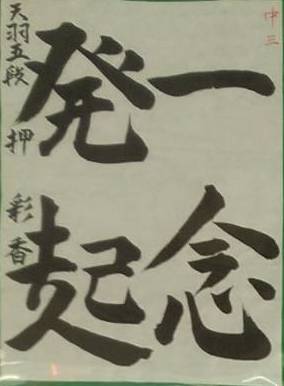 中三
一念
発起
天羽五段 押 彩香